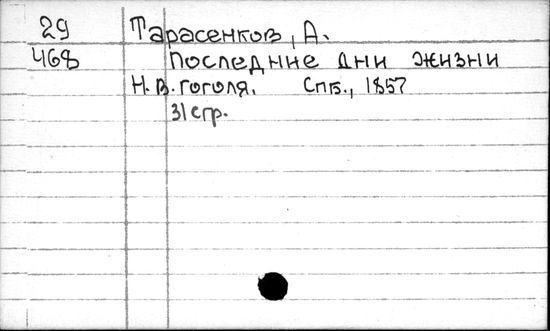 29 Тарасенков, А.
468 Последние дни жизни
Н. В. Гоголя. Спб., 1857
31 стр.